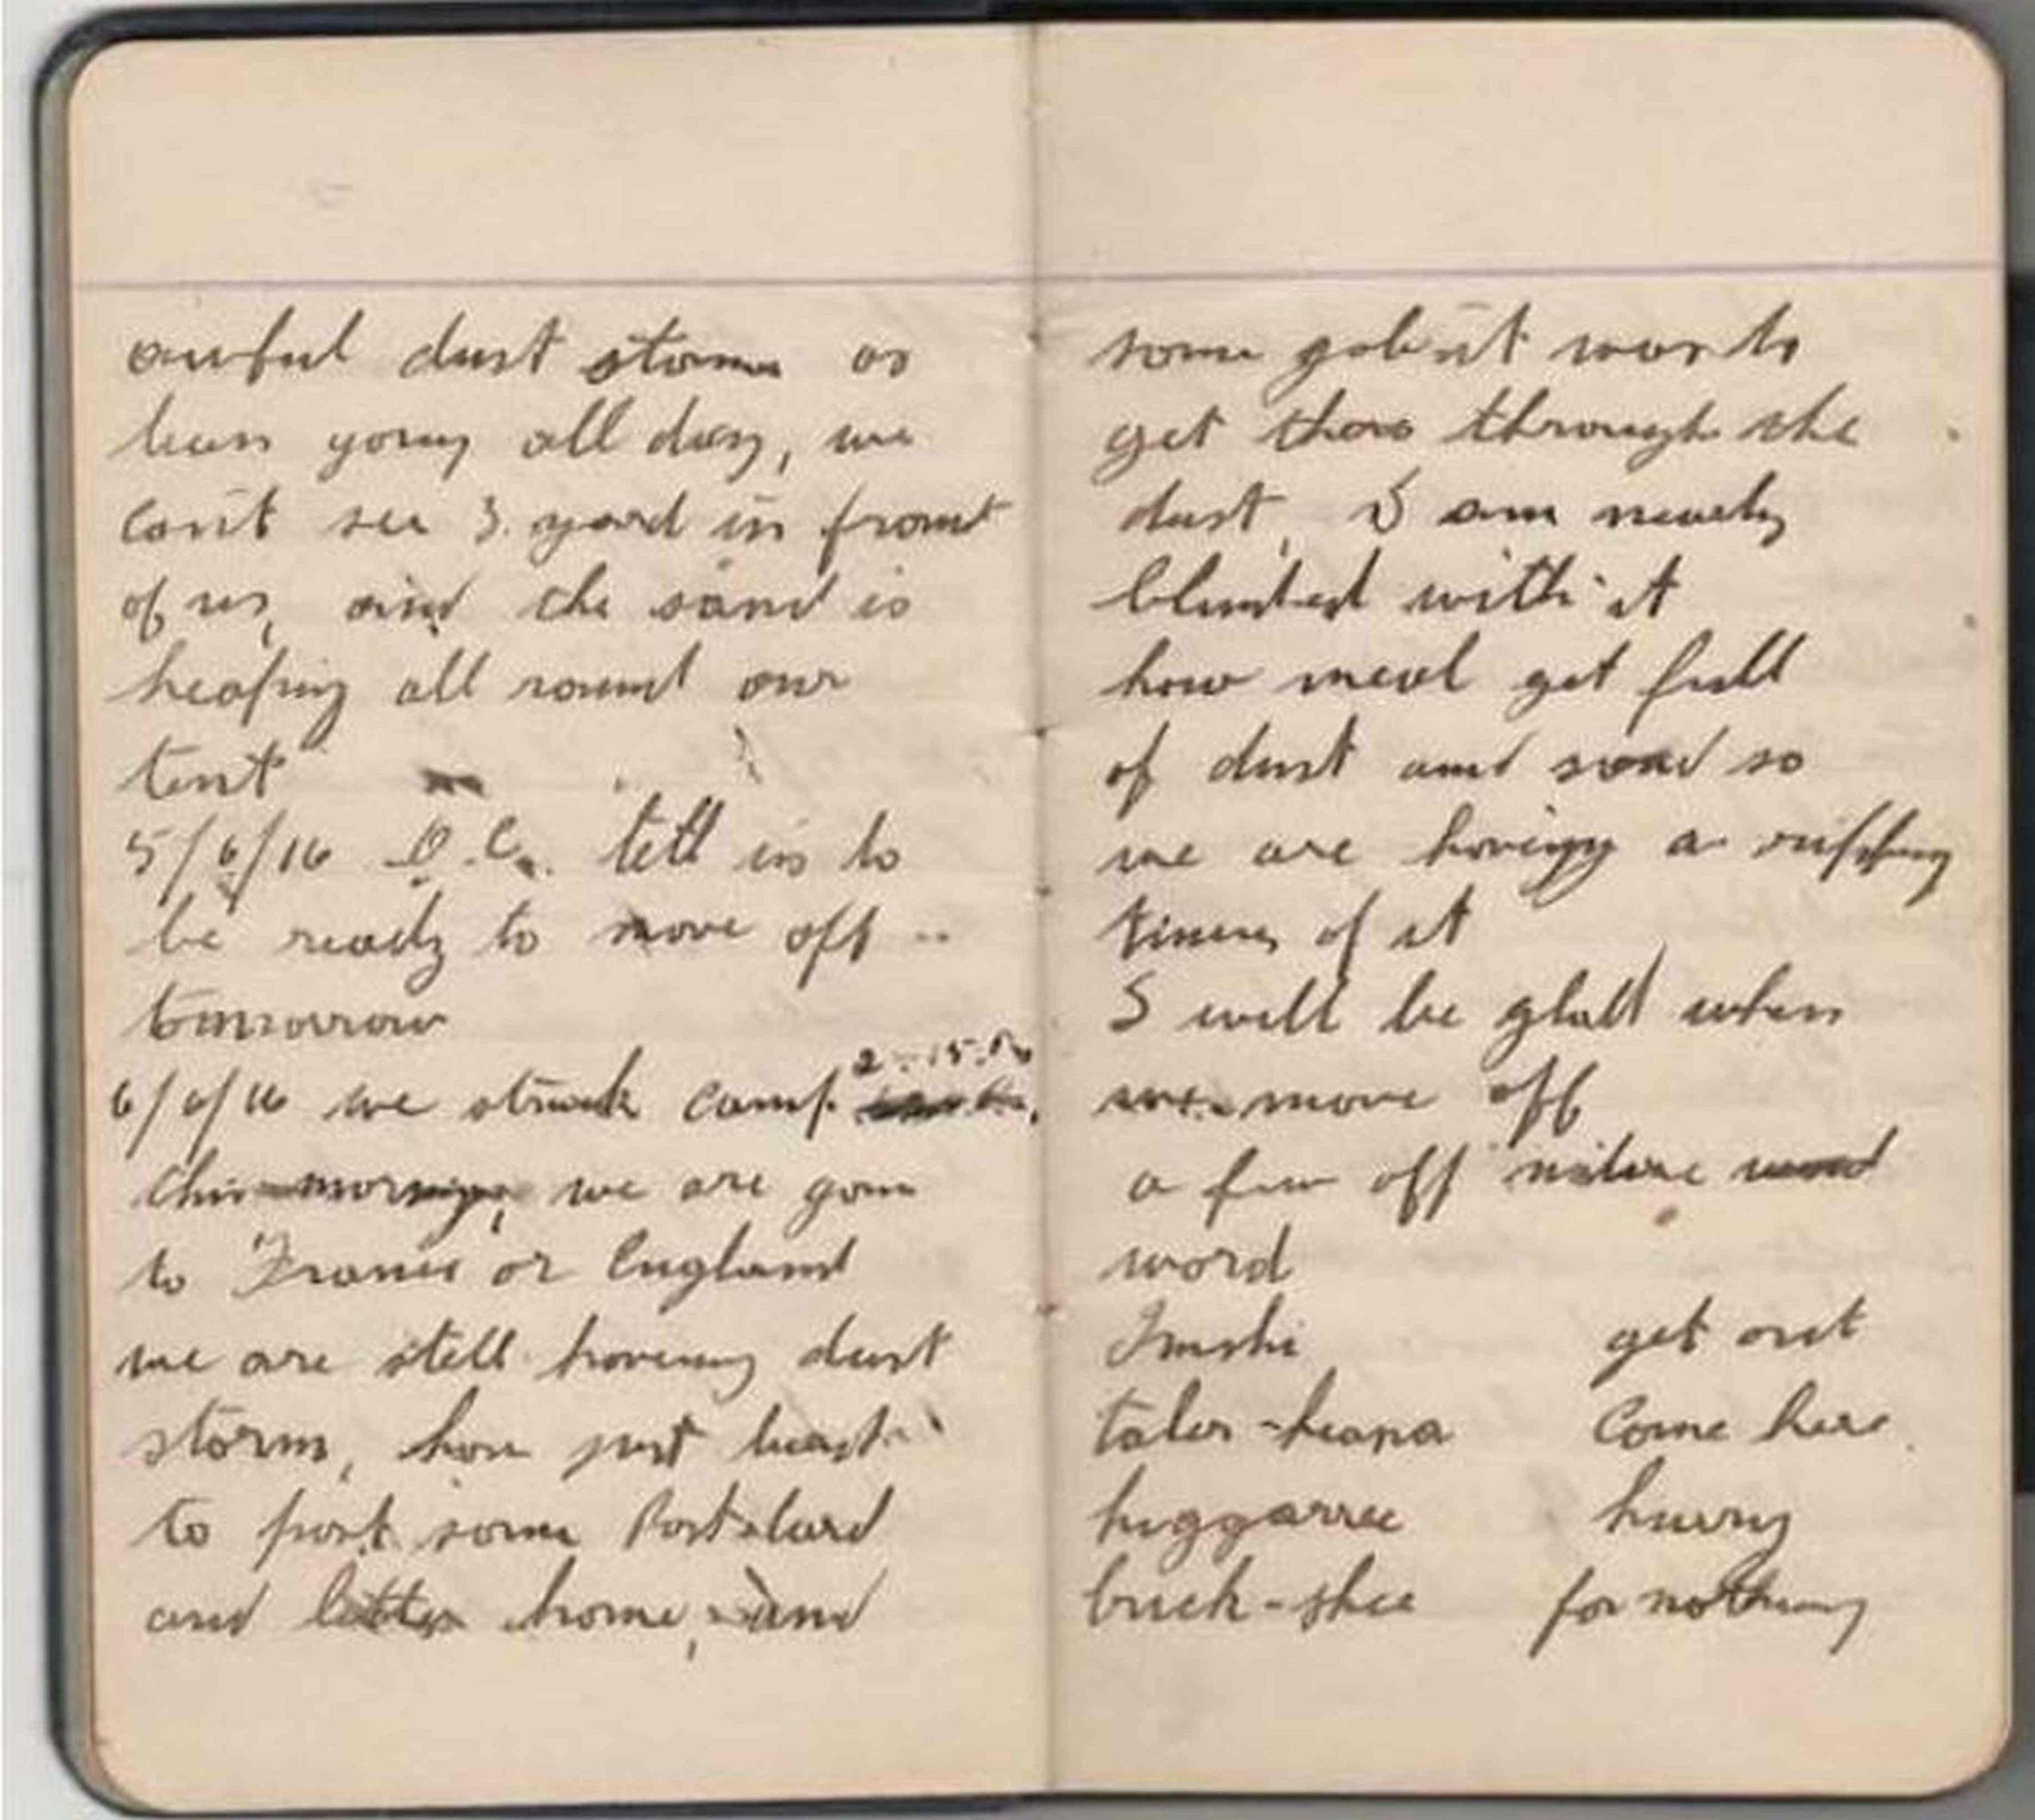 awful dust storm as
been going all day, we
can't see 3. yard in front
of us, and the sand is
heaping all round our
tent
5/6/16 O.C. tell us to
be ready to move off
tomorrow
6/6/16 we struck camp 2.15
this morning, we are goin
to France or England
we are still having dust
storm, have just been
to post some Post-Card
and letter home, and
some job it was to
get there through the
dust, I am nearly
blinded with it
how meal get full
of dust and sand so
we are having a ripping
times of it
I will be glad when
we move off
a few off native word
word
Imshi get out
taler-heana Come here
higgarree hurry
buck-shee for nothing